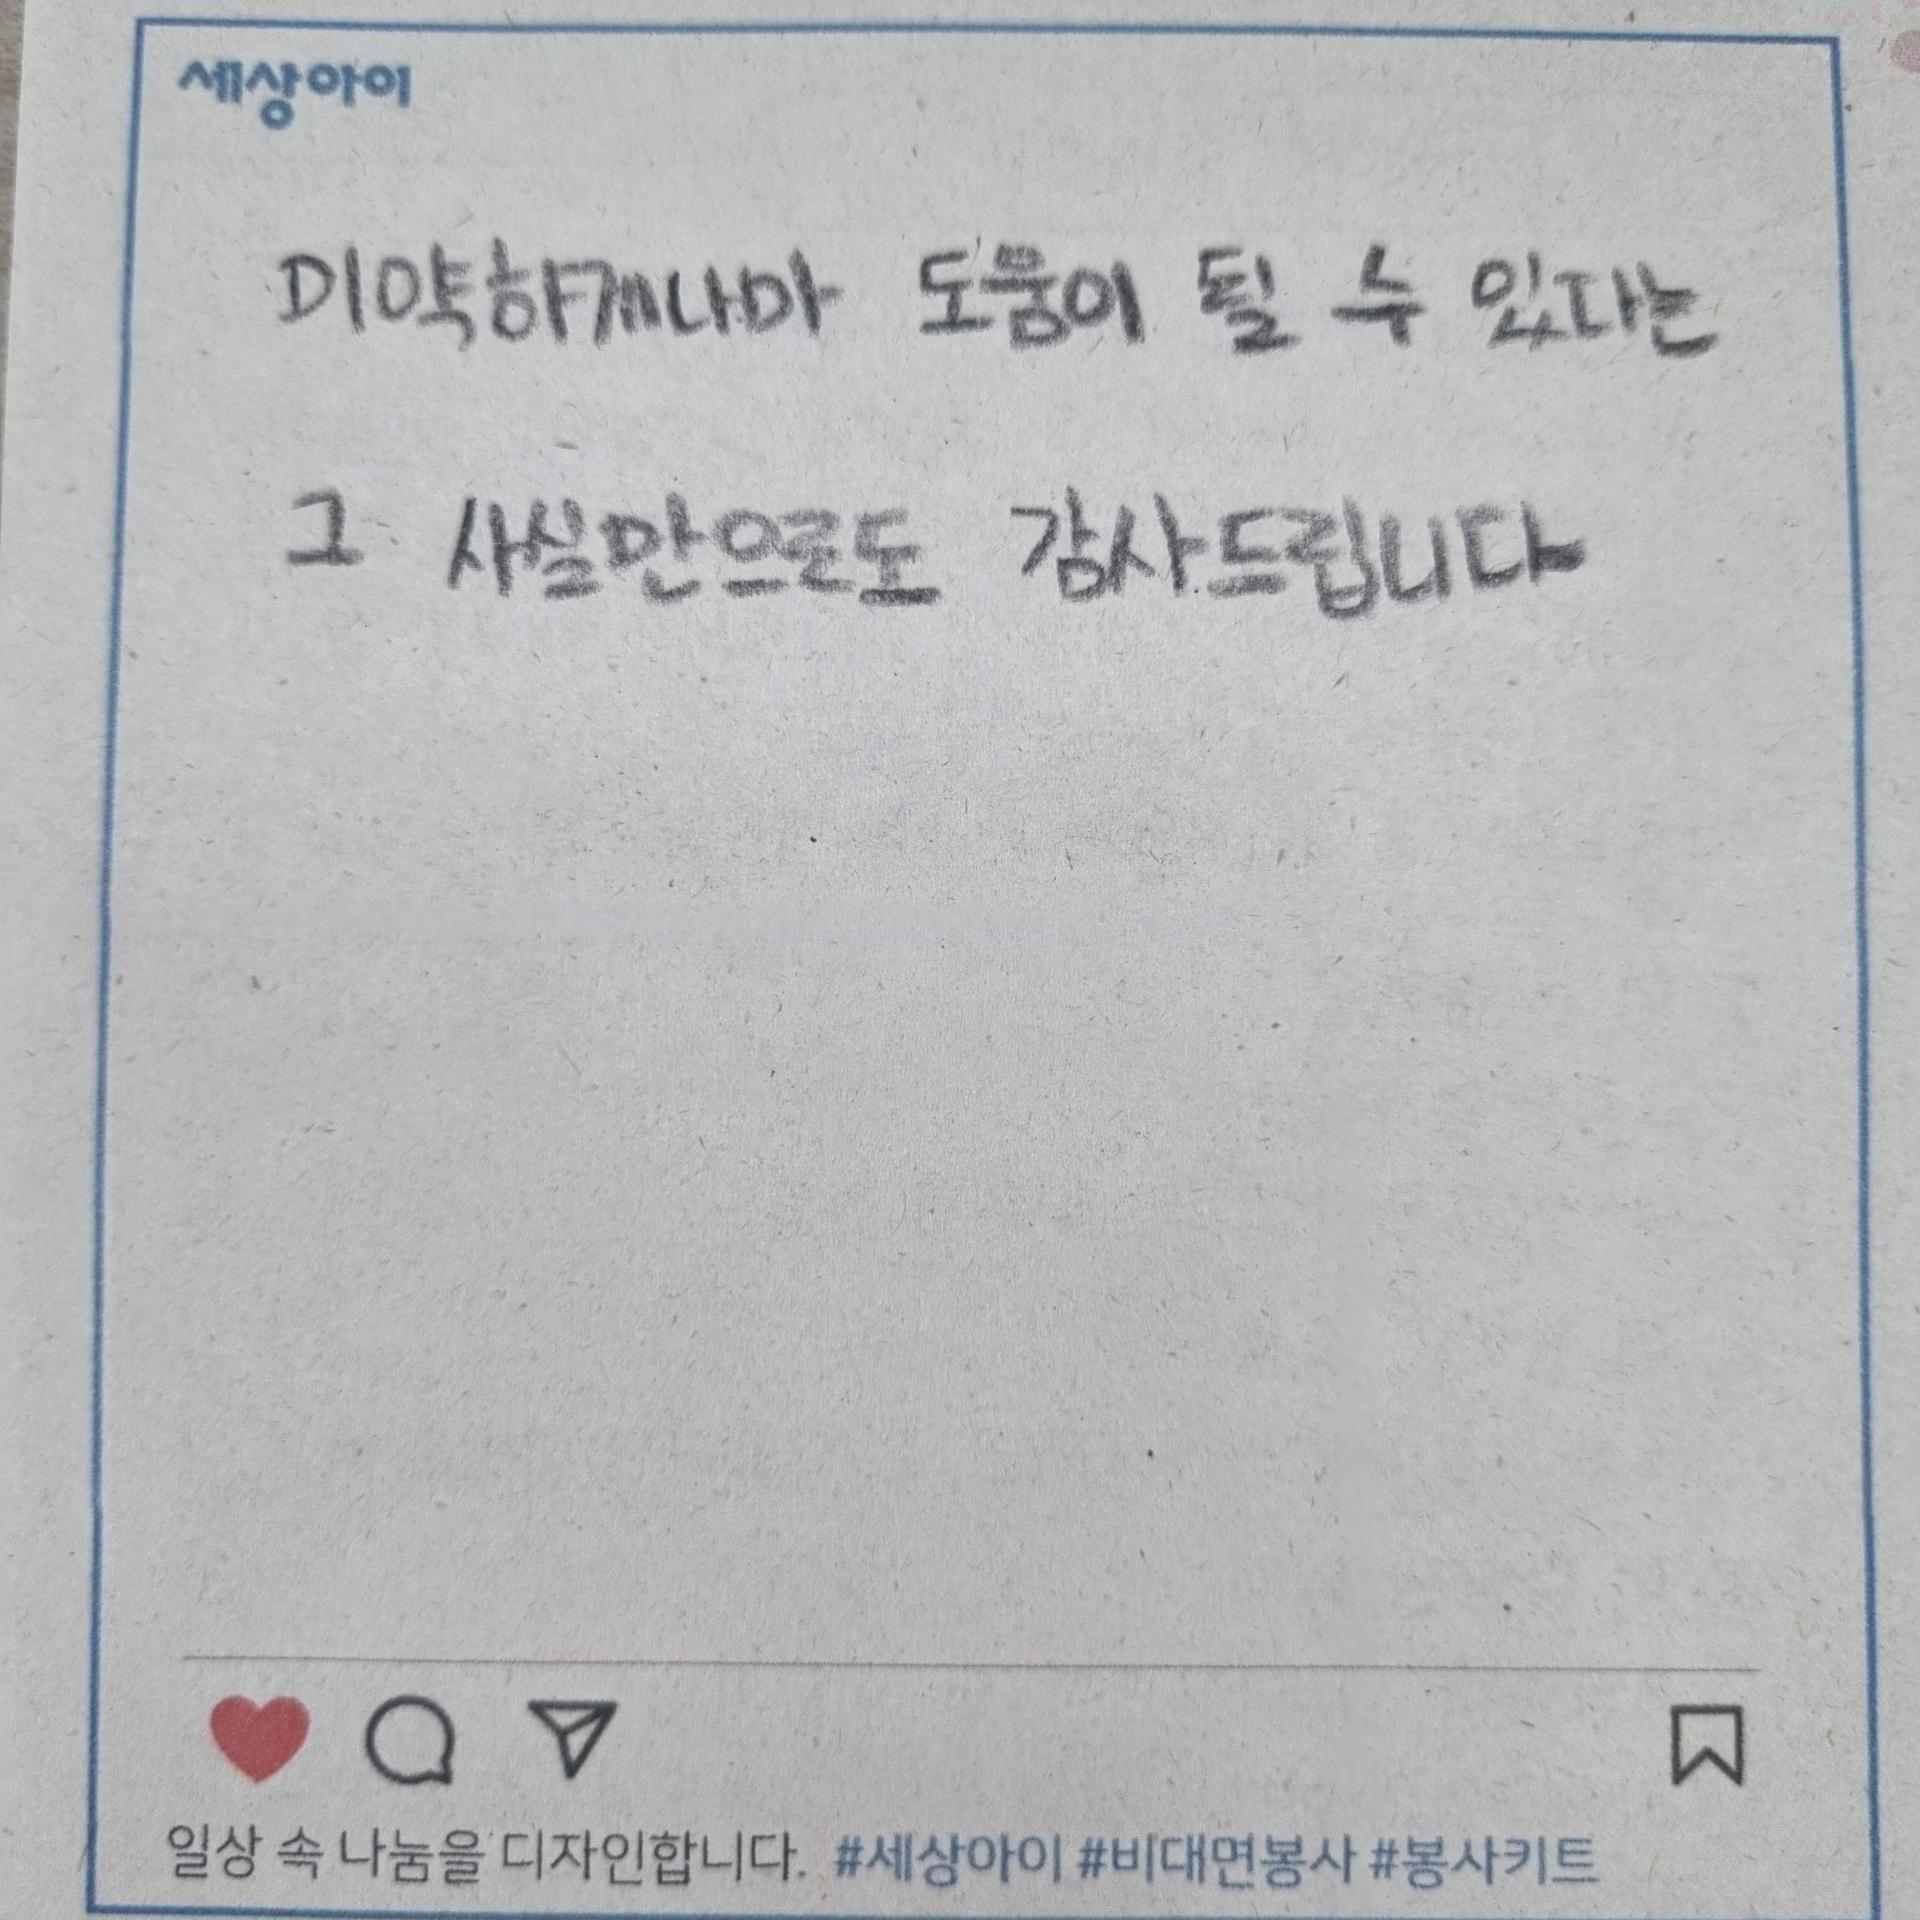 세상아이
미약하게나마 도움이 될 수 있다는
그 사실만으로도 감사드립니다
일상 속 나눔을 디자인합니다. #세상아이 #비대면봉사 #봉사키트